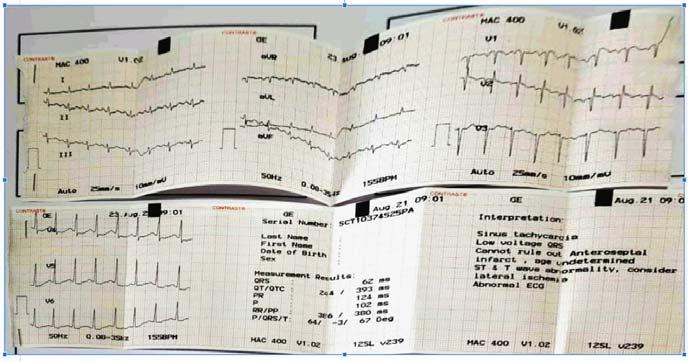 CONTRAST® CONTRAST® CONTRAST®
MAC 400 V1.02 GE 23 Aug 09:01 MAC 400 V1.02
I aVR V1
II aVL V2
III aVF V3
Auto 25mm/s 10mm/mV 50Hz 0.08-35Hz 155BPM Auto 25mm/s 10mm/mV
CONTRAST® CONTRAST® CONTRAST®
GE 23.Aug 09:01 GE Aug.21 09:01 GE Aug.21 09:0
V4
V5
V6
50Hz 0.08-35Hz 155BPM
Serial Number: SCT10374525PA
Last Name :
First Name :
Date of Birth :
Sex :
Measurement Results:
QRS : 62 ms
QT/QTC : / 393 ms
PR : 124 ms
P : 102 ms
RR/PP : 386 / 380 ms
P/QRS/T: 64/ -3/ 67 Deg
MAC 400 V1.02
Interpretation:
Sinus tachycardia
Low voltage QRS
Cannot rule out Anteroseptal
infarct , age undetermined
ST & T wave abnormality, consider
lateral ischemia
Abnormal ECG
MAC 400 V1.02 12SL v239 12SL v239